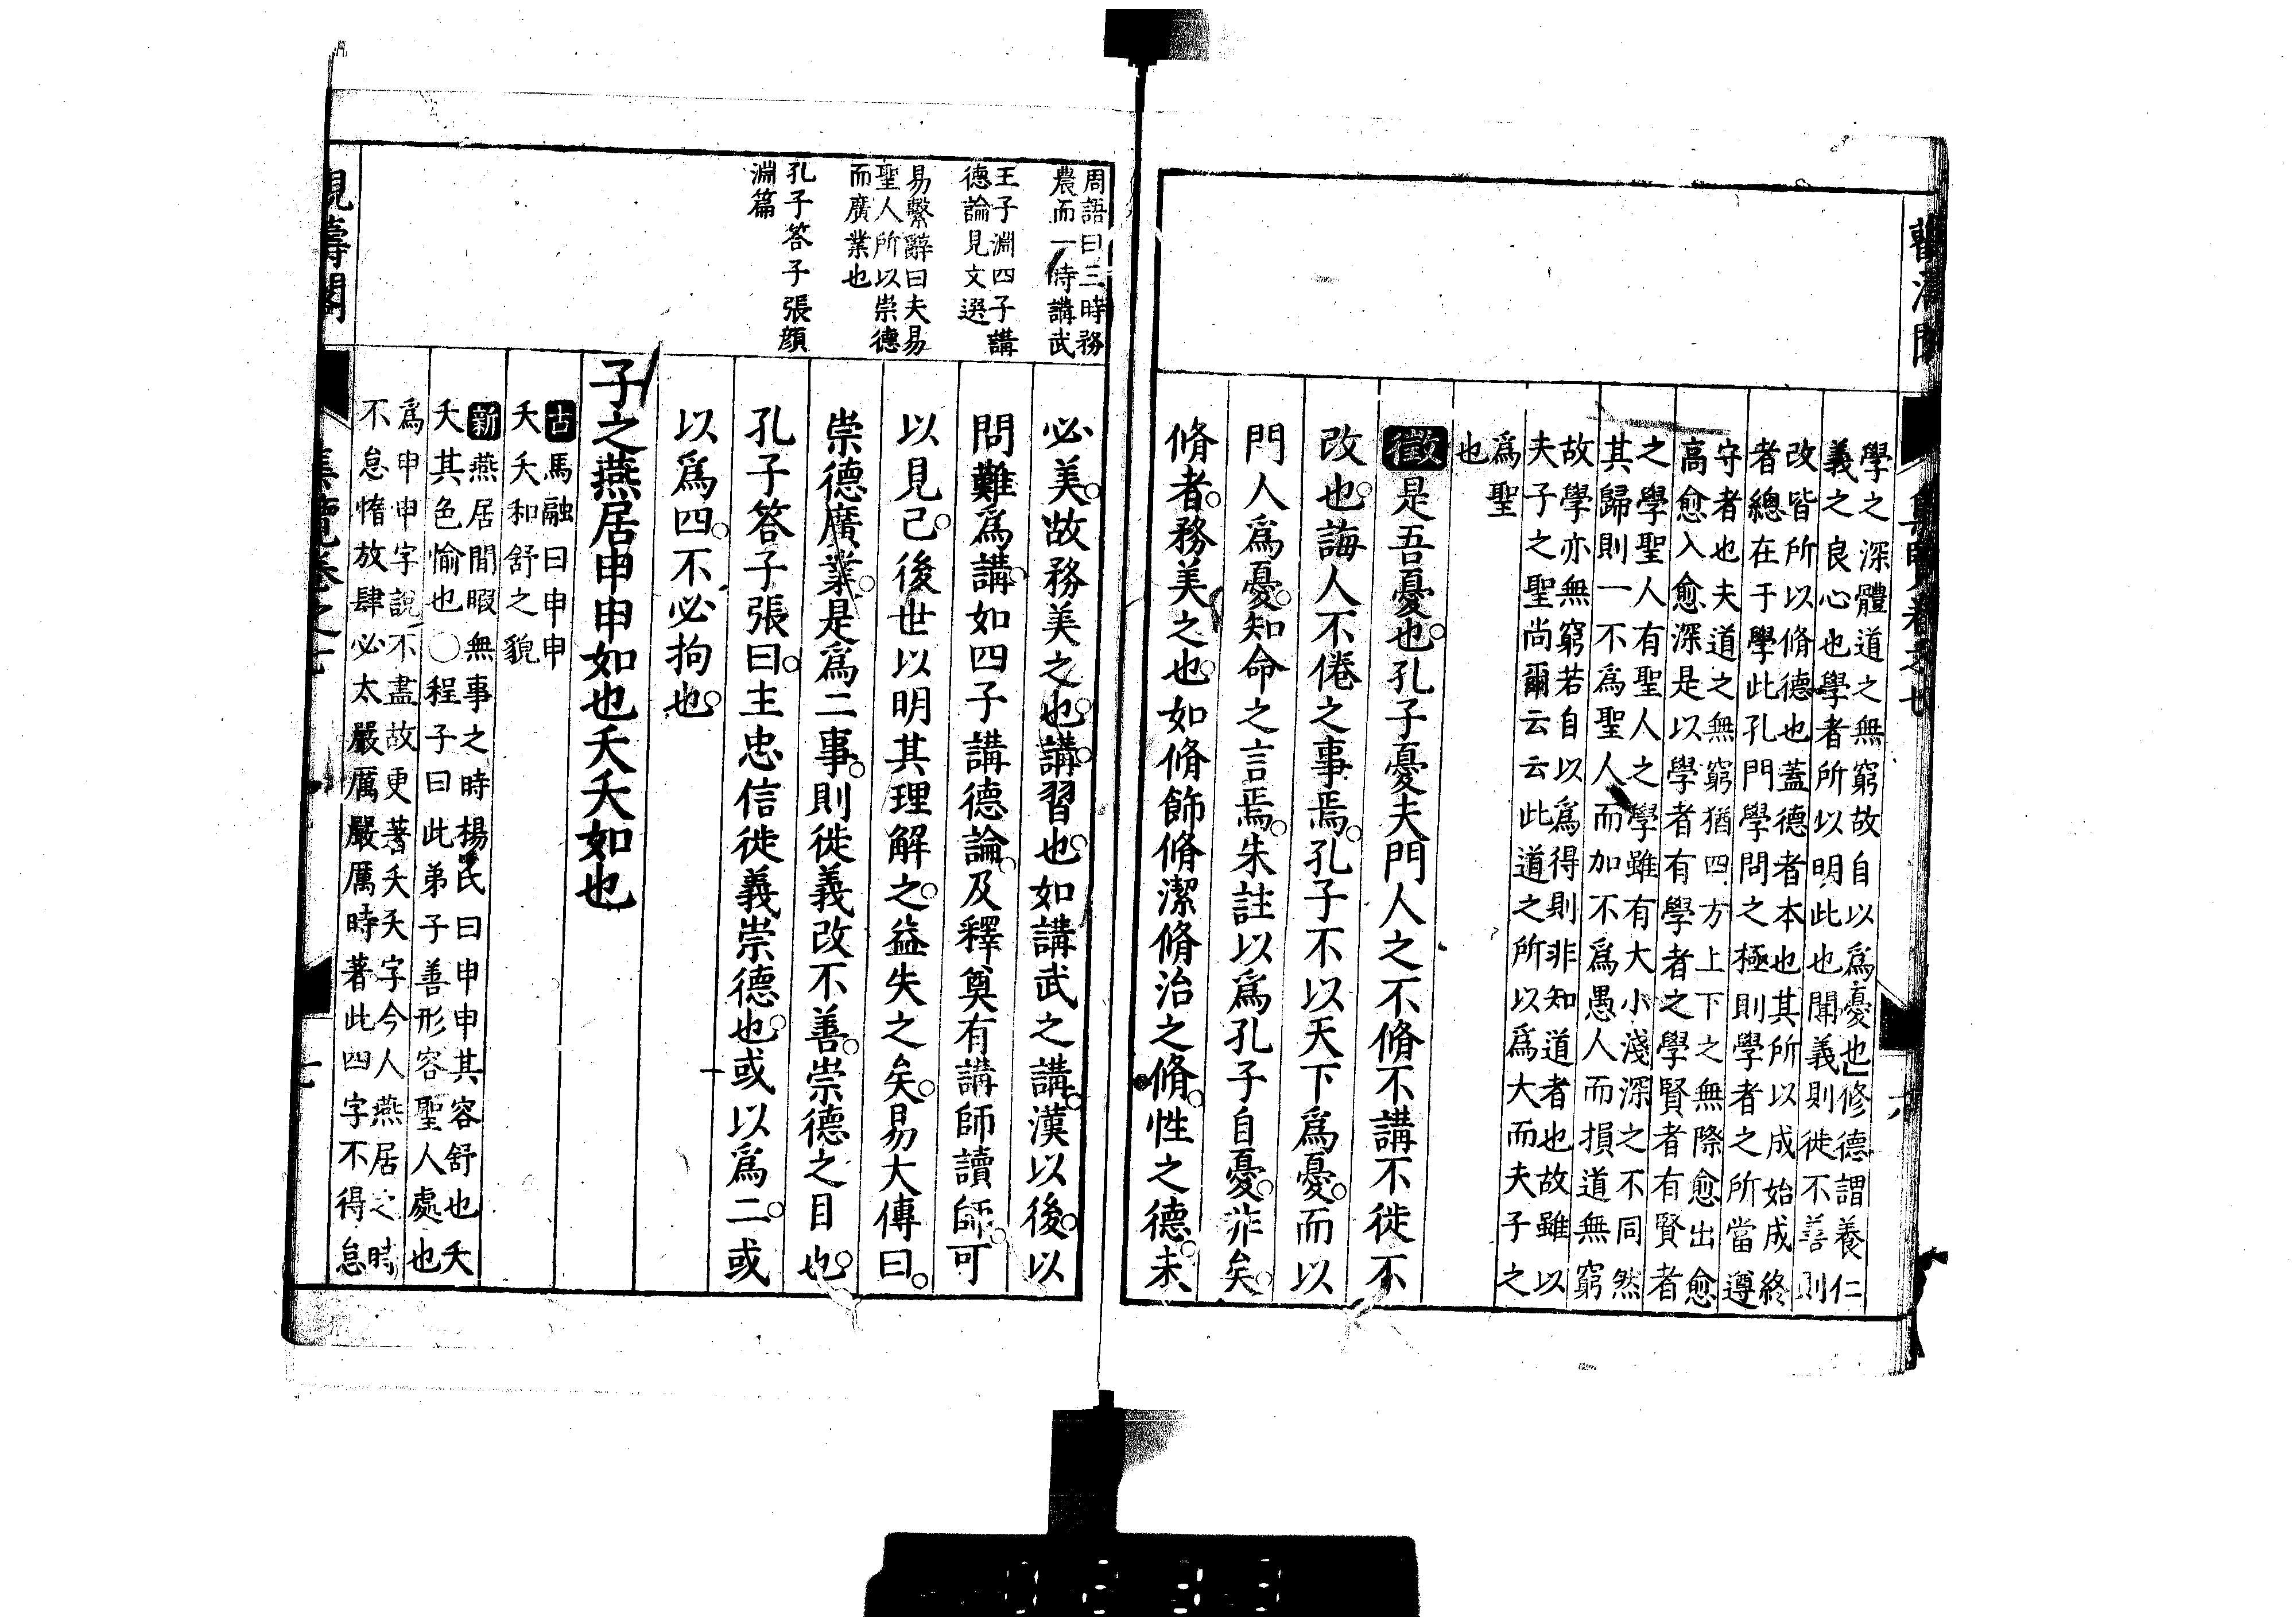 學之深體道之無窮故自以為憂也修德謂養仁
義之良心也學者所以明此也聞義則徙不善則
改皆所以脩德也蓋德者本也其所以成始成終
者總在于學此孔門學問之極則學者之所當遵
守者也夫道之無窮猶四方上下之無際愈出愈
高愈入愈深是以學者有學者之學賢者有賢者
之學聖人有聖人之學雖有大小淺深之不同然
其歸則一不為聖人而加不為愚人而損道無窮
故學亦無窮若自以為得則非知道者也故雖以
夫子之聖尚爾云云此道之所以為大而夫子之
為聖
也
徵是吾憂也孔子憂夫門人之不脩不講不徙不
改也誨人不倦之事焉孔子不以天下為憂而以
門人為憂知命之言焉朱註以為孔子自憂非矣
脩者務美之也如脩飾脩潔脩治之脩性之德未
周語曰三時務
農而一時講武
王子淵四子講
德論見文選
易繫辭曰夫易
聖人所以崇德
而廣業也
孔子答子張顏
淵篇
必美故務美之也講習也如講武之講漢以後以
問難為講如四子講德論及釋奠有講師讀師可
以見已後世以明其理解之益失之矣易大傳曰
崇德廣業是為二事則徙義改不善崇德之目也
孔子答子張曰主忠信徙義崇德也或以為二或
以為四不必拘也
子之燕居申申如也夭夭如也
古馬融曰申申
夭夭和舒之貌
新燕居閒暇無事之時楊氏曰申申其容舒也夭
夭其色愉也○程子曰此弟子善形容聖人處也
為申申字說不盡故更著夭夭字今人燕居之時
不怠惰放肆必太嚴厲嚴厲時著此四字不得怠